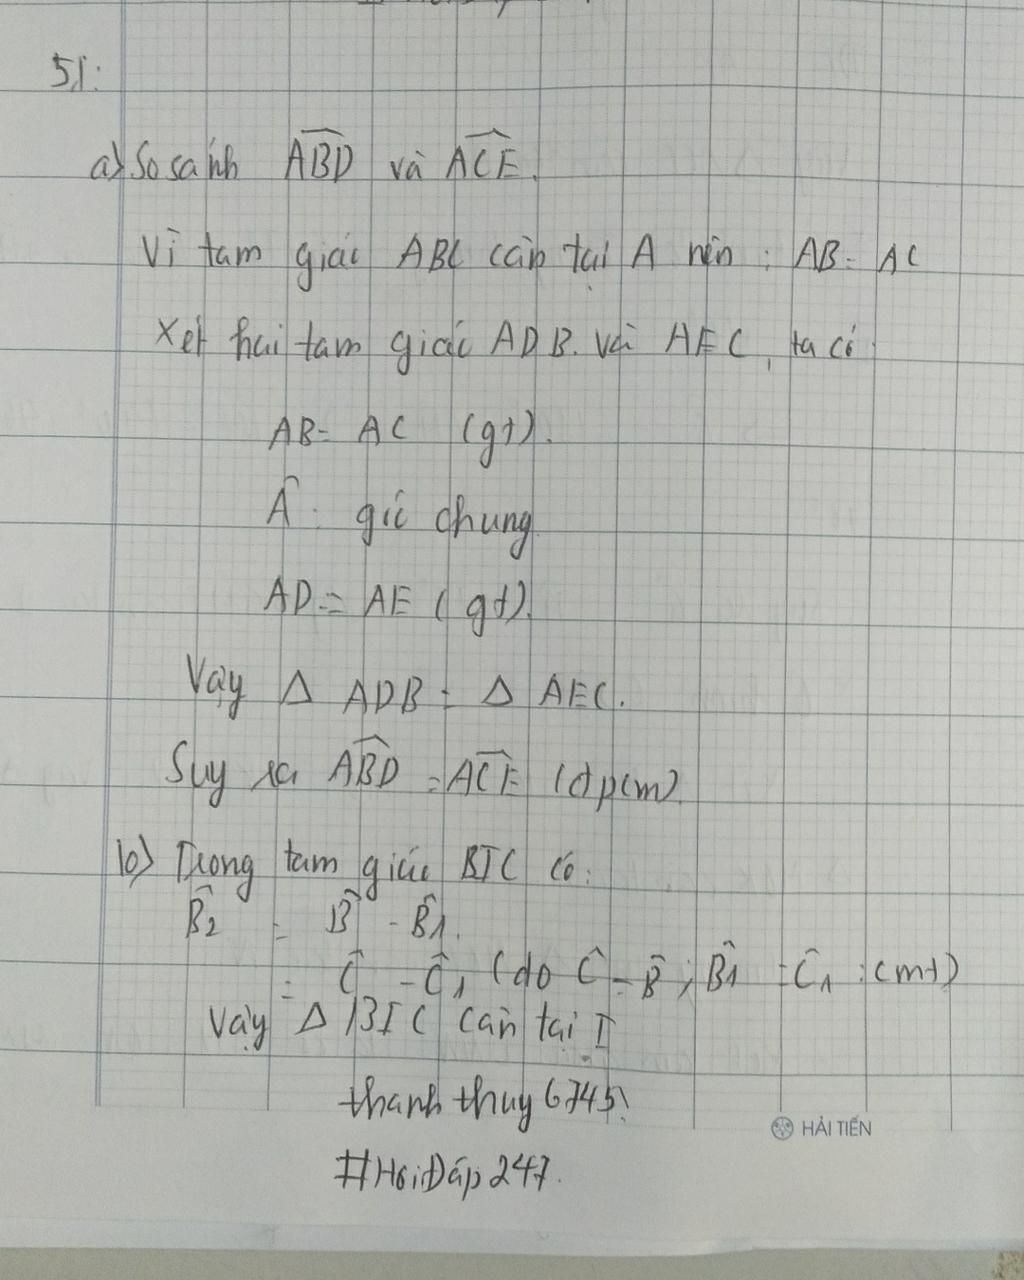 51:
a) So sánh ABD và ACE.
Vì tam giác ABC cân tại A nên : AB = AC
Xét hai tam giác ADB. Và AEC, ta có:
AB = AC (gt).
Â : góc chung
AD = AE (gt).
Vậy Δ ADB = Δ AEC.
Suy ra ABD = ACE (đpcm).
b) Trong tam giác BIC có:
B̂2 = B̂ - B̂1.
= Ĉ - Ĉ1 (do Ĉ = B̂; B̂1 = Ĉ1 : cmt)
Vậy Δ BIC cân tại I
thanh thuy 6745
HẢI TIẾN
#HỏiĐáp247.